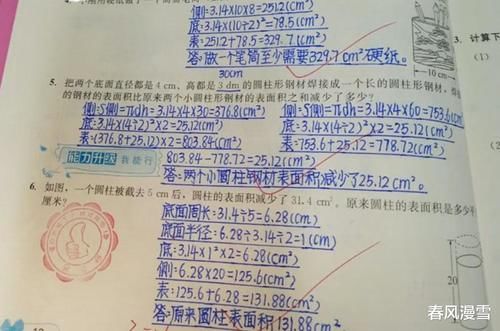 侧:3.14×10×8=251.2(cm²)
底:3.14×(10÷2)²=78.5(cm²)
表:251.2+78.5=329.7(cm²)
答:做一个笔筒至少需要329.7cm²硬纸。
10 cm
3. 计算下
(1)
30cm
5. 把两个底面直径都是 4 cm、高都是 3 dm 的圆柱形钢材焊接成一个长的圆柱形钢材,
的钢材的表面积比原来两个小圆柱形钢材的表面积之和减少了多少?
侧:S侧=πdh=3.14×4×30=376.8(cm²)
底:3.14×(4÷2)²×2=25.12(cm²)
表:(376.8+25.12)×2=803.84(cm²)
侧:S侧=πdh=3.14×4×60=753.6(cm²)
底:3.14×(4÷2)²×2=25.12(cm²)
表:753.6+25.12=778.72(cm²)
能力升级 我能行
803.84-778.72=25.12(cm²)
答:两个小圆柱钢材表面积减少了25.12cm²。
6. 如图,一个圆柱被截去 5 cm 后,圆柱的表面积减少了 31.4 cm²。原来圆柱的表面积是多少平
厘米?
底面周长:31.4÷5=6.28(cm)
底面半径:6.28÷3.14÷2=1(cm)
底:3.14×1²×2=6.28(cm²)
侧:6.28×20=125.6(cm²)
表:125.6+6.28=131.88(cm²)
答:原来圆柱表面积131.88cm²
20
春风漫雪